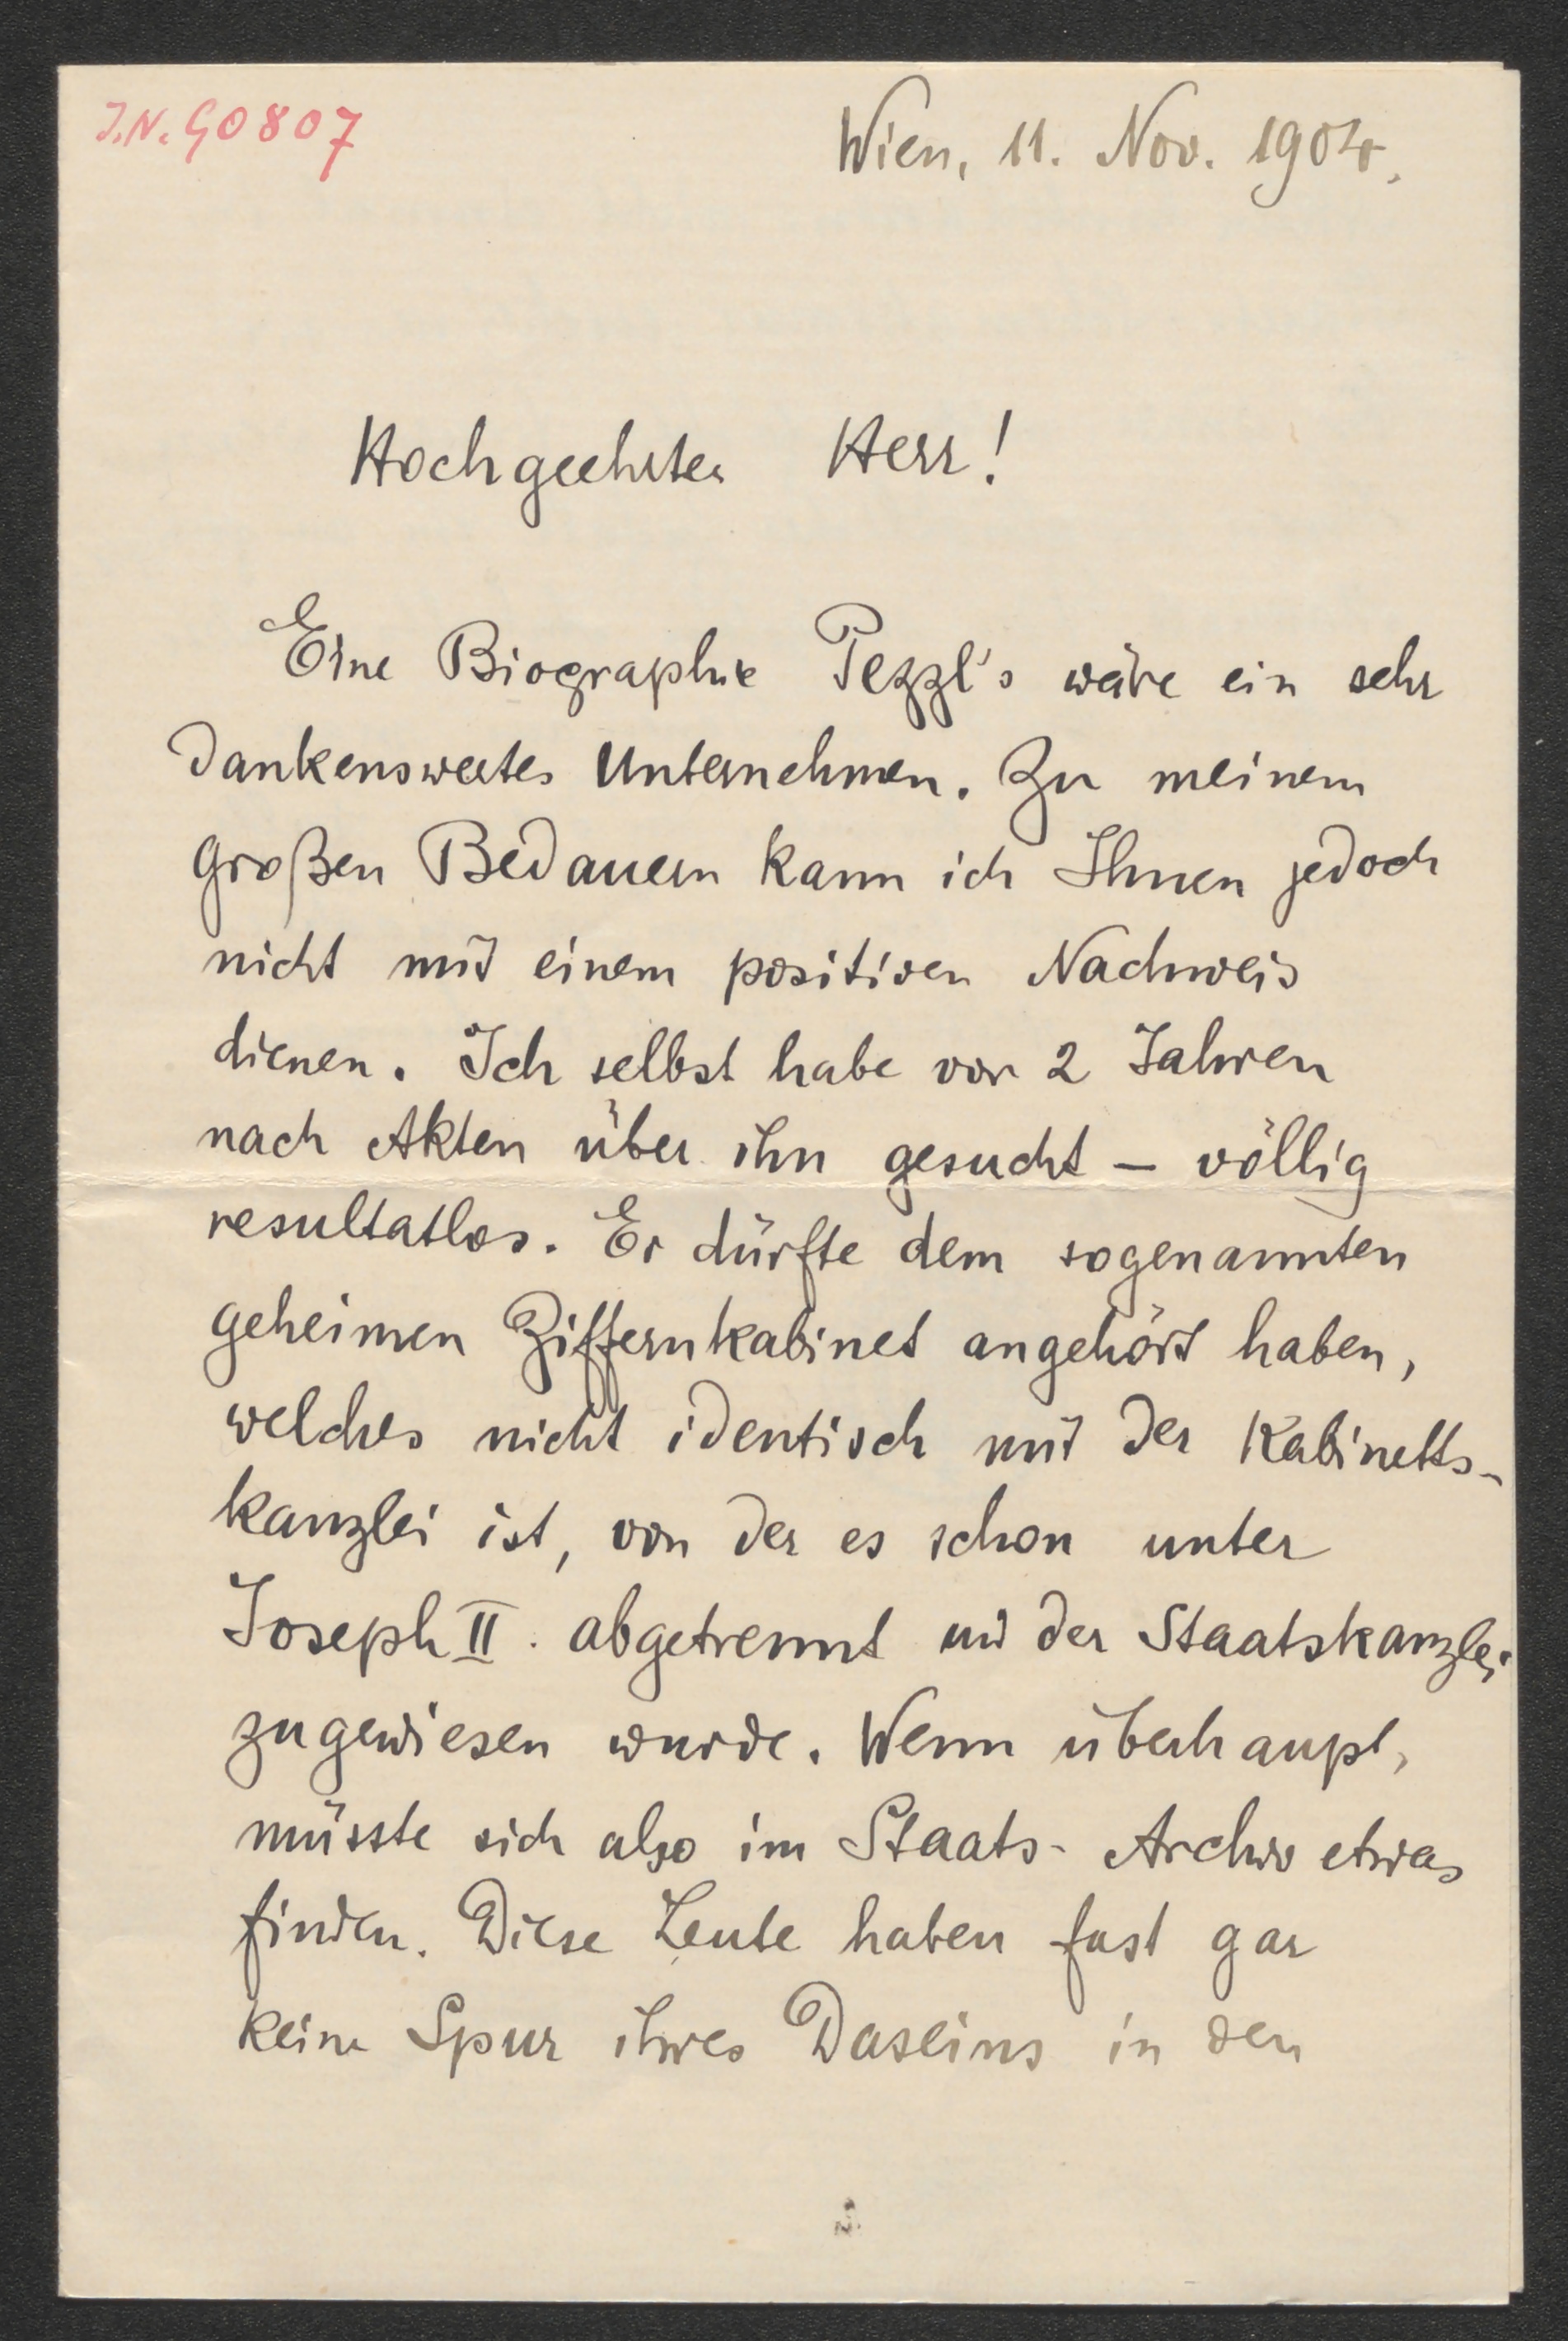 J.N. 90807
Wien, 11. Nov. 1904.
Hochgeehrter Herr!
Eine Biographie Pezzl's wäre ein sehr
dankenswertes Unternehmen. Zu meinem
großen Bedauern kann ich Ihnen jedoch
nicht mit einem positiven Nachweis
dienen. Ich selbst habe vor 2 Jahren
nach Akten über ihn gesucht – völlig
resultatlos. Er dürfte dem sogenannten
geheimen Ziffernkabinet angehört haben,
welches nicht identisch mit der Kabinetts-
kanzlei ist, von der es schon unter
Joseph II. abgetrennt und der Staatskanzlei
zugewiesen wurde. Wenn überhaupt,
müsste sich also im Staats-Archiv etwas
finden. Diese Leute haben fast gar
keine Spur ihres Daseins in den